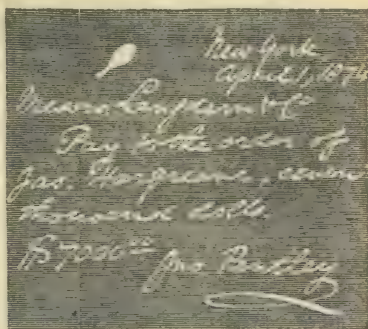 New York
April 1, 187
Messrs. & Co
Pay to the order of
Jas. Hargreene, seven
thousand dolls.
$7000.00
Jno Bentley